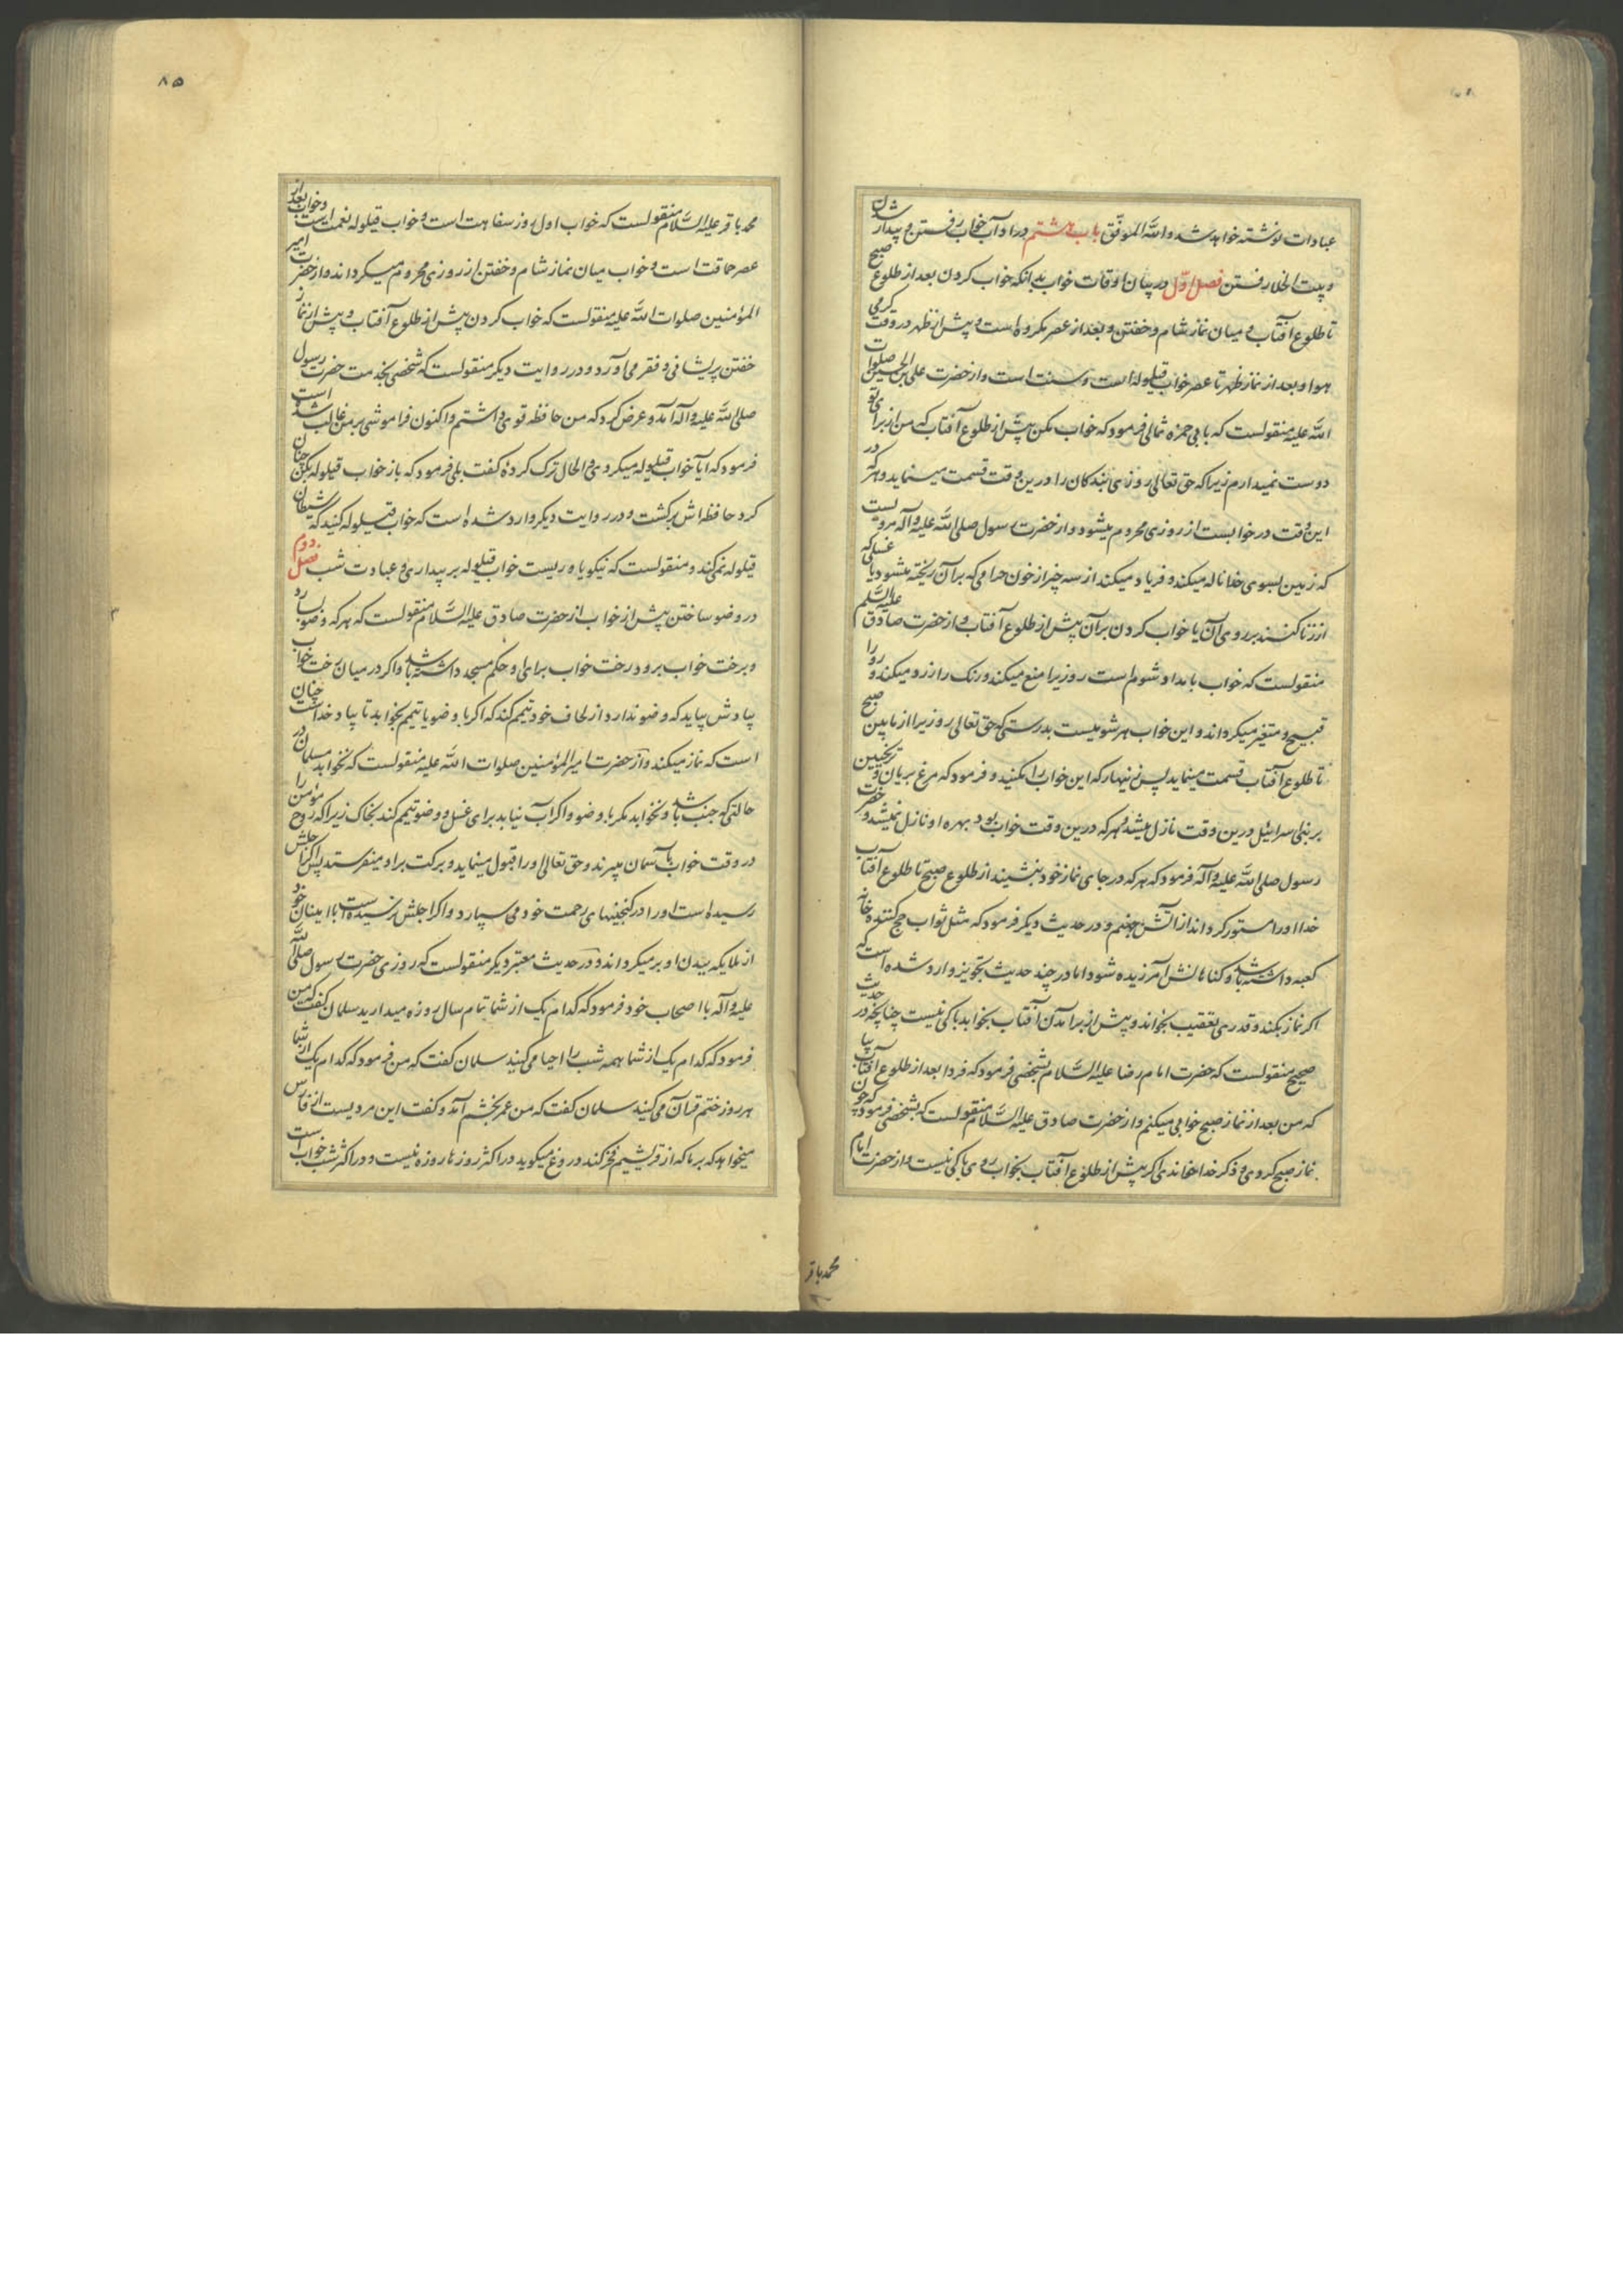 عبادات نوشته خواهد شد والله الموفق باب هشتم در آداب خواب رفتن و بیدار شدن
و بیت الخلا رفتن فصل اول در بیان اوقات خواب بدانکه خواب کردن بعد از طلوع صبح
تا طلوع آفتاب و میان نماز شام و خفتن و بعد از عصر مکروه است و پیش از ظهر در وقت کرمی
هوا و بعد از نماز ظهر تا عصر خواب قیلوله است و سنت است و از حضرت علی بن الحسین صلوات
الله علیه منقولست که بابی حمزه ثمالی فرمود که خواب مکن پیش از طلوع آفتاب که من از برای تو
دوست نمیدارم زیرا که حق تعالی روزی بندکان را درین وقت قسمت مینماید و هر که در
این وقت در خوابست از روزی محروم میشود و از حضرت رسول صلی الله علیه و آله مرویست
که زمین بسوی خدا ناله میکند و فریاد میکند از سه چیز از خون حرامی که بر آن ریخته میشود یا غسلی که
از زنا کنند بر روی آن یا خواب کردن بر آن پیش از طلوع آفتاب و از حضرت صادق علیه السلم
منقولست که خواب بامداد شوم است روزیرا منع میکند و رنک را زرد میکند و رو را
قبیح و متغیر میکرداند و این خواب هر شومیست بدرستی که حق تعالی روزیرا از مابین صبح
تا طلوع آفتاب قسمت مینماید پس زینهار که این خواب را مکنید و فرمود که مرغ بریان و ترنجبین
بر بنی اسرائیل درین وقت نازل میشد و هر که درین وقت خواب بود بهره او نازل نمیشد و حضرت
رسول صلی الله علیه و آله فرمود که هر که در جای نماز خود بنشیند از طلوع صبح تا طلوع آفتاب
خدا اورا مستور کرداند از آتش جهنم و در حدیث دیکر فرمود که مثل ثواب حج کننده خانه
کعبه داشته باشد و کناهانش آمرزیده شود اما در چند حدیث تجویز وارد شده است که
اکر نماز بکند و قدری تعقیب بخواند و پیش از برآمدن آفتاب بخوابد باکی نیست چنانچه در حدیث
صحیح منقولست که حضرت امام رضا علیه السلام بشخصی فرمود که فردا بعد از طلوع آفتاب بیا
که من بعد از نماز صبح خوابی میکنم و از حضرت صادق علیه السلام منقولست که بشخصی فرمود که چون
نماز صبح کردی و ذکر خدا خواندی اکر پیش از طلوع آفتاب بخواب روی باکی نیست و از حضرت امام
محمد باقر
۸۵
محمد باقر علیه السلام منقولست که خواب اول روز سفاهت است و خواب قیلوله نعمت است و خواب بعد از
عصر حماقت است و خواب میان نماز شام و خفتن از روزی محروم میکرداند و از حضرت امیر
المؤمنین صلوات الله علیه منقولست که خواب کردن پیش از طلوع آفتاب و پیش از نماز
خفتن پریشانی و فقر می آورد و در روایت دیکر منقولست که شخصی بخدمت حضرت رسول
صلی الله علیه و آله آمد و عرض کرد که من حافظه قوی داشتم و اکنون فراموشی بر من غالب شده است
فرمود که آیا خواب قیلوله میکردی و الحال ترک کرده کفت بلی فرمود که باز خواب قیلوله بکن چنان
کرد حافظه اش برکشت و در روایت دیکر وارد شده است که خواب قیلوله کنید که شیطان
قیلوله نمی کند و منقولست که نیکو یاوریست خواب قیلوله بر بیداری و عبادت شب فصل دوم
در وضو ساختن پیش از خواب از حضرت صادق علیه السلام منقولست که هر که وضو بسازد
و برخت خواب برود رخت خواب برای او حکم مسجد داشته باشد و اکر در میان رخت خواب
بیادش بیاید که وضو ندارد از لحاف خود تیمم کند که اکر با وضو یا تیمم بخوابد تا بیاد خداست چنان
است که نماز میکند و از حضرت امیر المؤمنین صلوات الله علیه منقولست که نخوابد مسلمان در
حالتی که جنب باشد و نخوابد مکر با وضو و اکر آب نیابد برای غسل و وضو تیمم کند بخاک زیرا که روح مؤمن را
در وقت خواب بآسمان میبرند و حق تعالی اورا قبول مینماید و برکت بر او میفرستد پس اکر اجلش
رسیده است اورا در کنجینهای رحمت خود می سپارد و اکر اجلش نرسیده است با امینان خود
از ملایکه ببدن او برمیکرداند و در حدیث معتبر دیکر منقولست که روزی حضرت رسول صلی الله
علیه و آله با اصحاب خود فرمود که کدام یک از شما تمام سال روزه میدارید سلمان کفت که من
فرمود که کدام یک از شما همه شب را احیا می کنید سلمان کفت که من فرمود که کدام یک از شما
هر روز ختم قرآن می کنید سلمان کفت که من عمر بخشم آمد و کفت این مردیست از فارس
میخواهد که بر ما که از قریشیم فخر کند دروغ میکوید در اکثر روزها روزه نیست و در اکثر شب خوابست